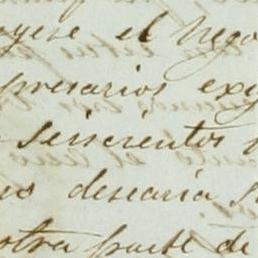 el nego
presarios exi
seiscientos
desearia s
otra parte de